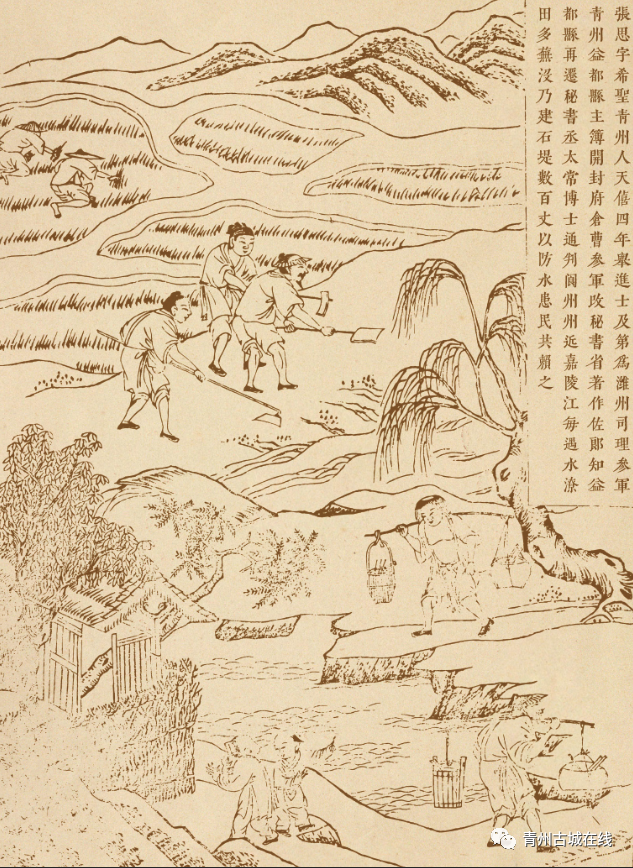 張思字希聖青州人天僖四年舉進士及第爲濰州司理參軍
青州益都縣主簿開封府倉曹參軍改秘書省著作佐郎知益
都縣再遷秘書丞太常博士通判閬州州延嘉陵江每遇水潦
田多蕪沒乃建石堤數百丈以防水患民共賴之
青州古城在线